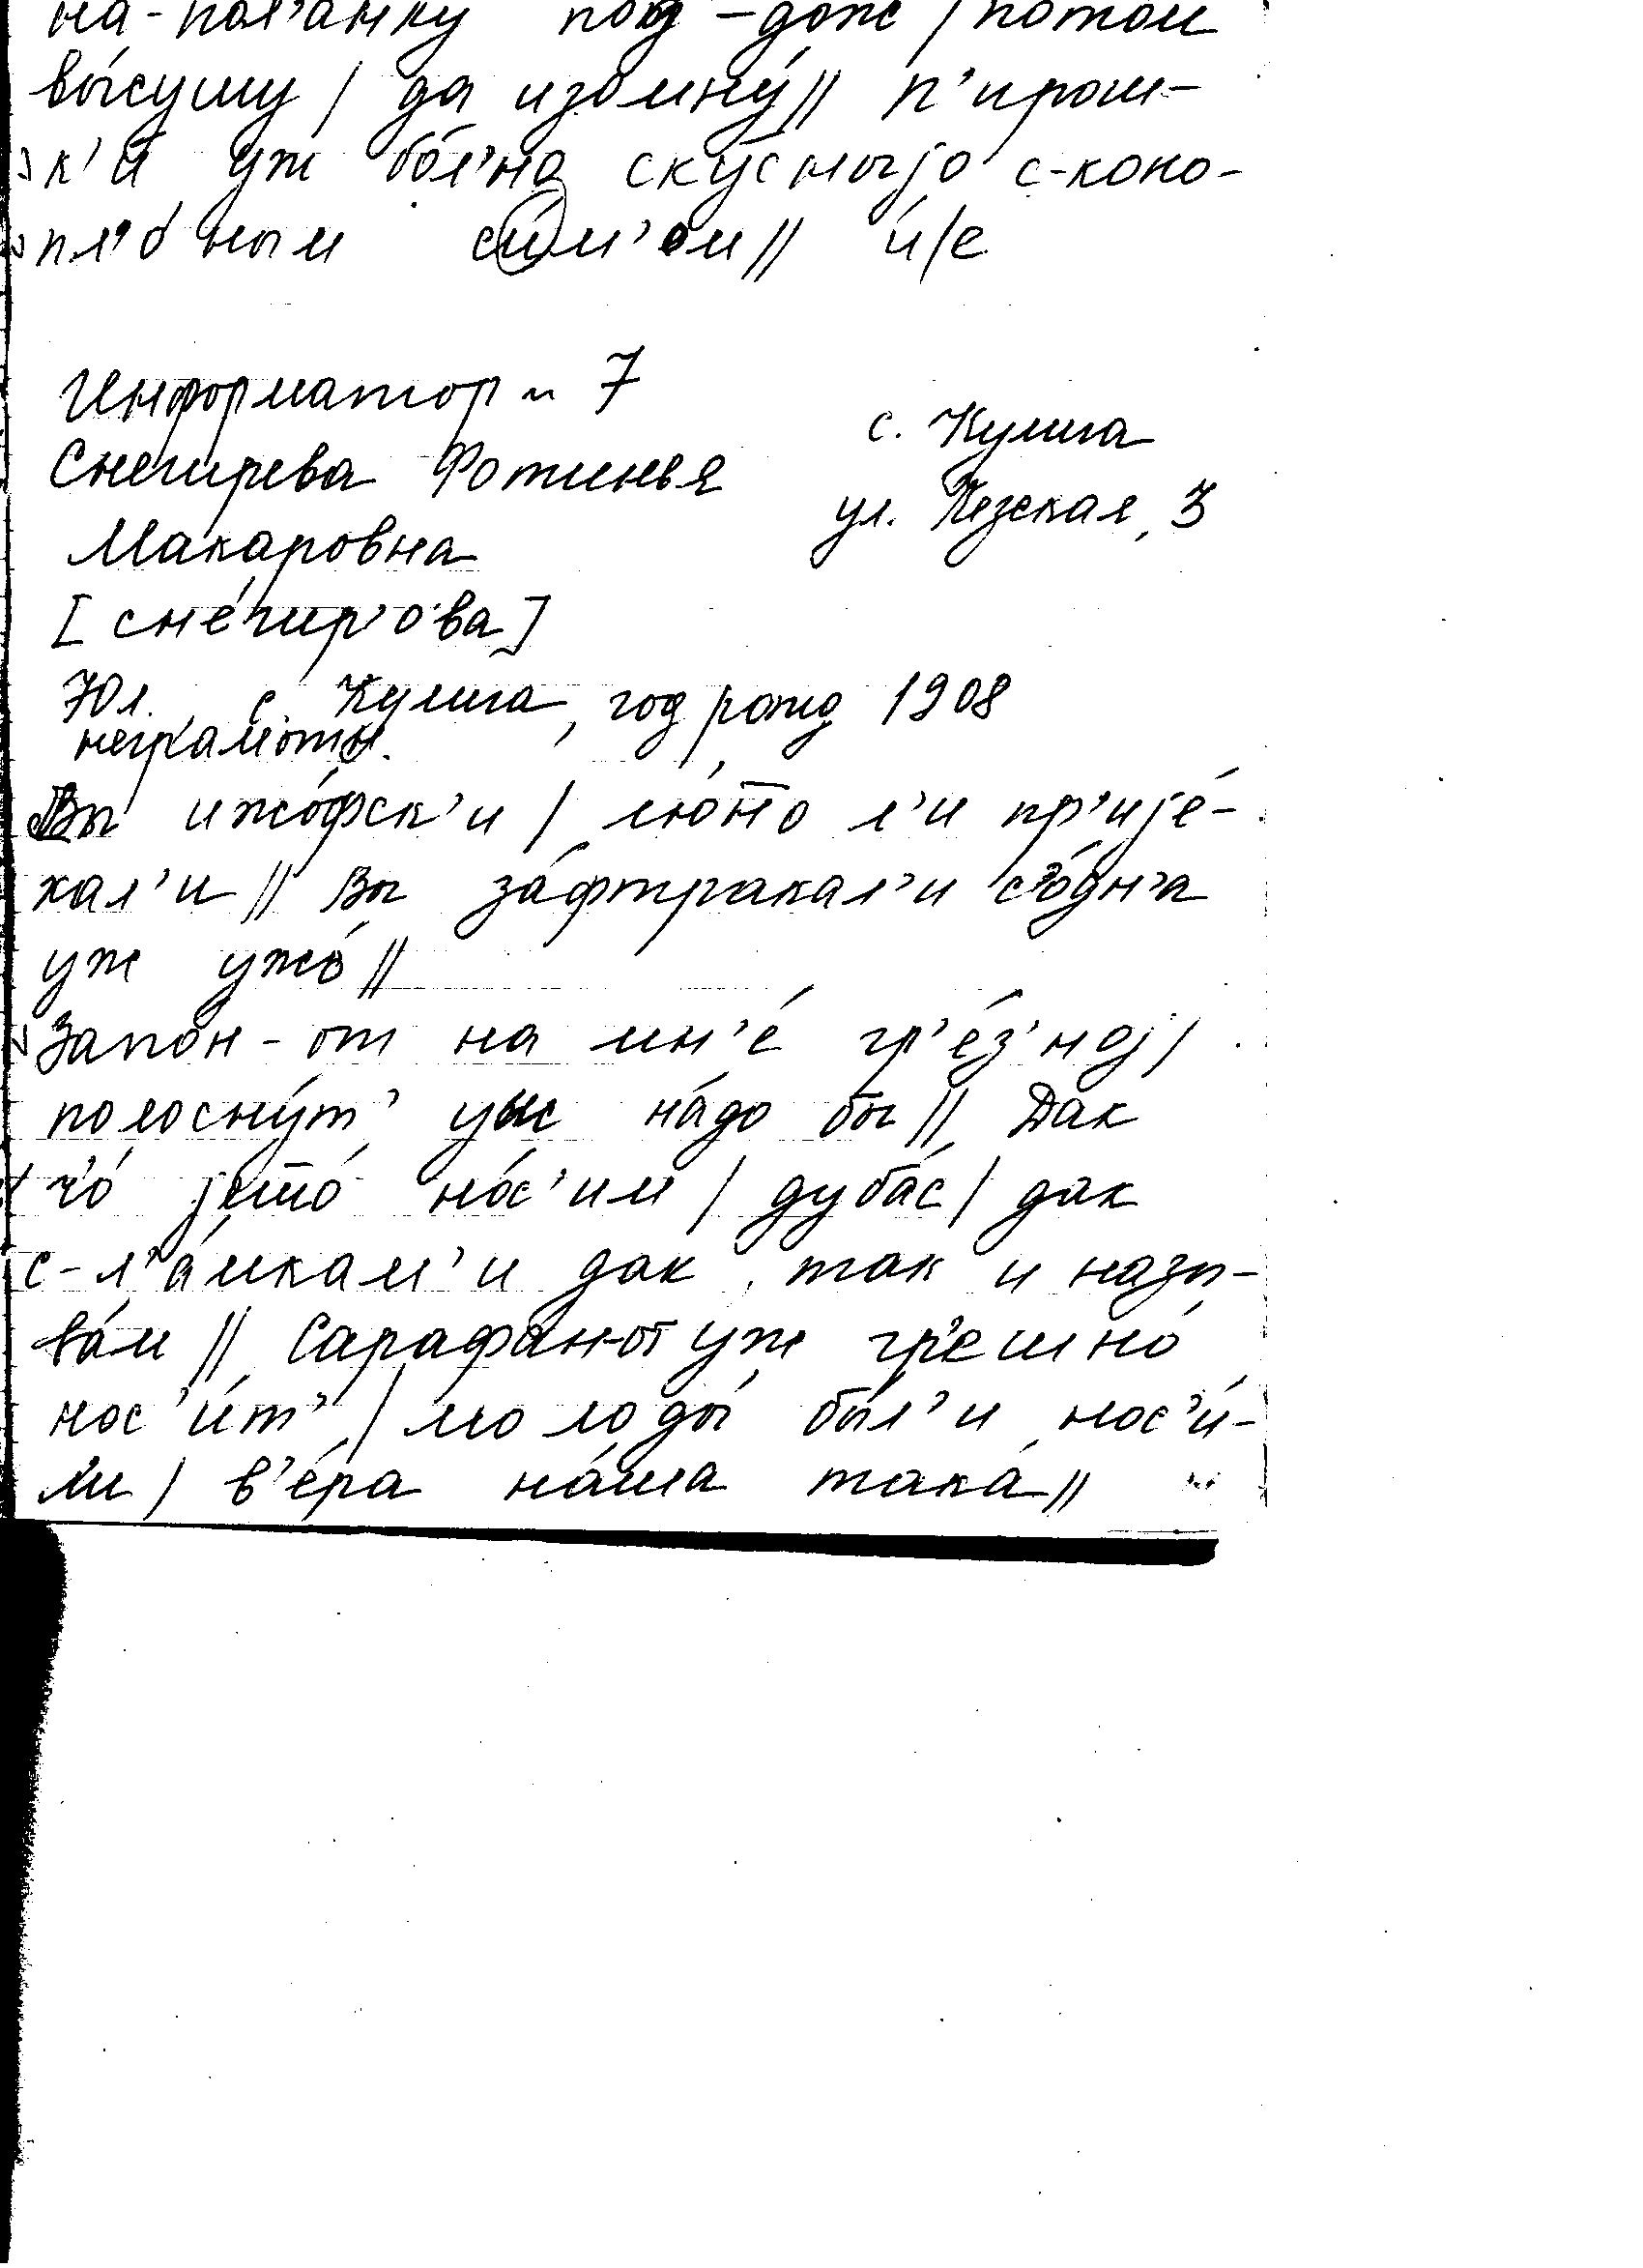 на-пол'анку под-дож / потом
вы́сушу / да изомну́ // п'ирош-
к'и́ уж бо́л'но ску́сныjо с-коно-
пл'о́ным си́м'ом // и/е
Информатор ~ 7
с. Кулига
Снегирева Фотинья
ул. Кезская, 3
Макаровна
[сне́гир'о·ва]
70 л. с. Кулига, год рожд 1908
неграмотн.
Вы ижо́фск'и / лю́то л'и пр'иjе́-
хал'и // Вы за́фтракал'и с'о́дн'а
уж ужо́ //
Запо́н-от на мн'е́ гр'е́з'ноj /
полосну́т' уж на́до бы // Дак
ч'о́ нос'им / дуба́с / дак
с-л'а́мкам'и дак, так и назы-
ва́м // Сарафа́н-от уж гр'ешно́
нос'и́т' / молоды́ бы́л'и нос'и́-
ли / в'е́ра на́ша така́ //